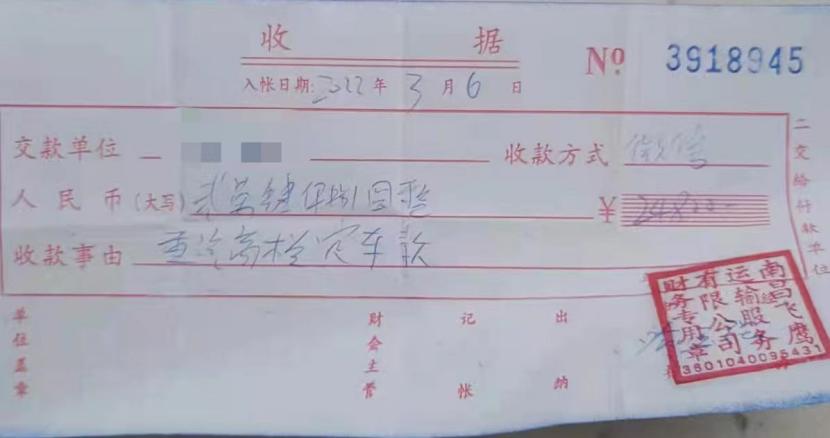 收 据
№ 3918945
入帐日期: 2022 年 3 月 6 日
交款单位 收款方式 微信
人民币(大写) 贰萬肆仟捌佰圆整 ¥ 24800-
收款事由 重汽高栏定车款
二交给付款单位
单位盖章 财会主管 记帐 出纳
南昌飞鹰
运输服务
有限公司
财务专用章
3601040095431